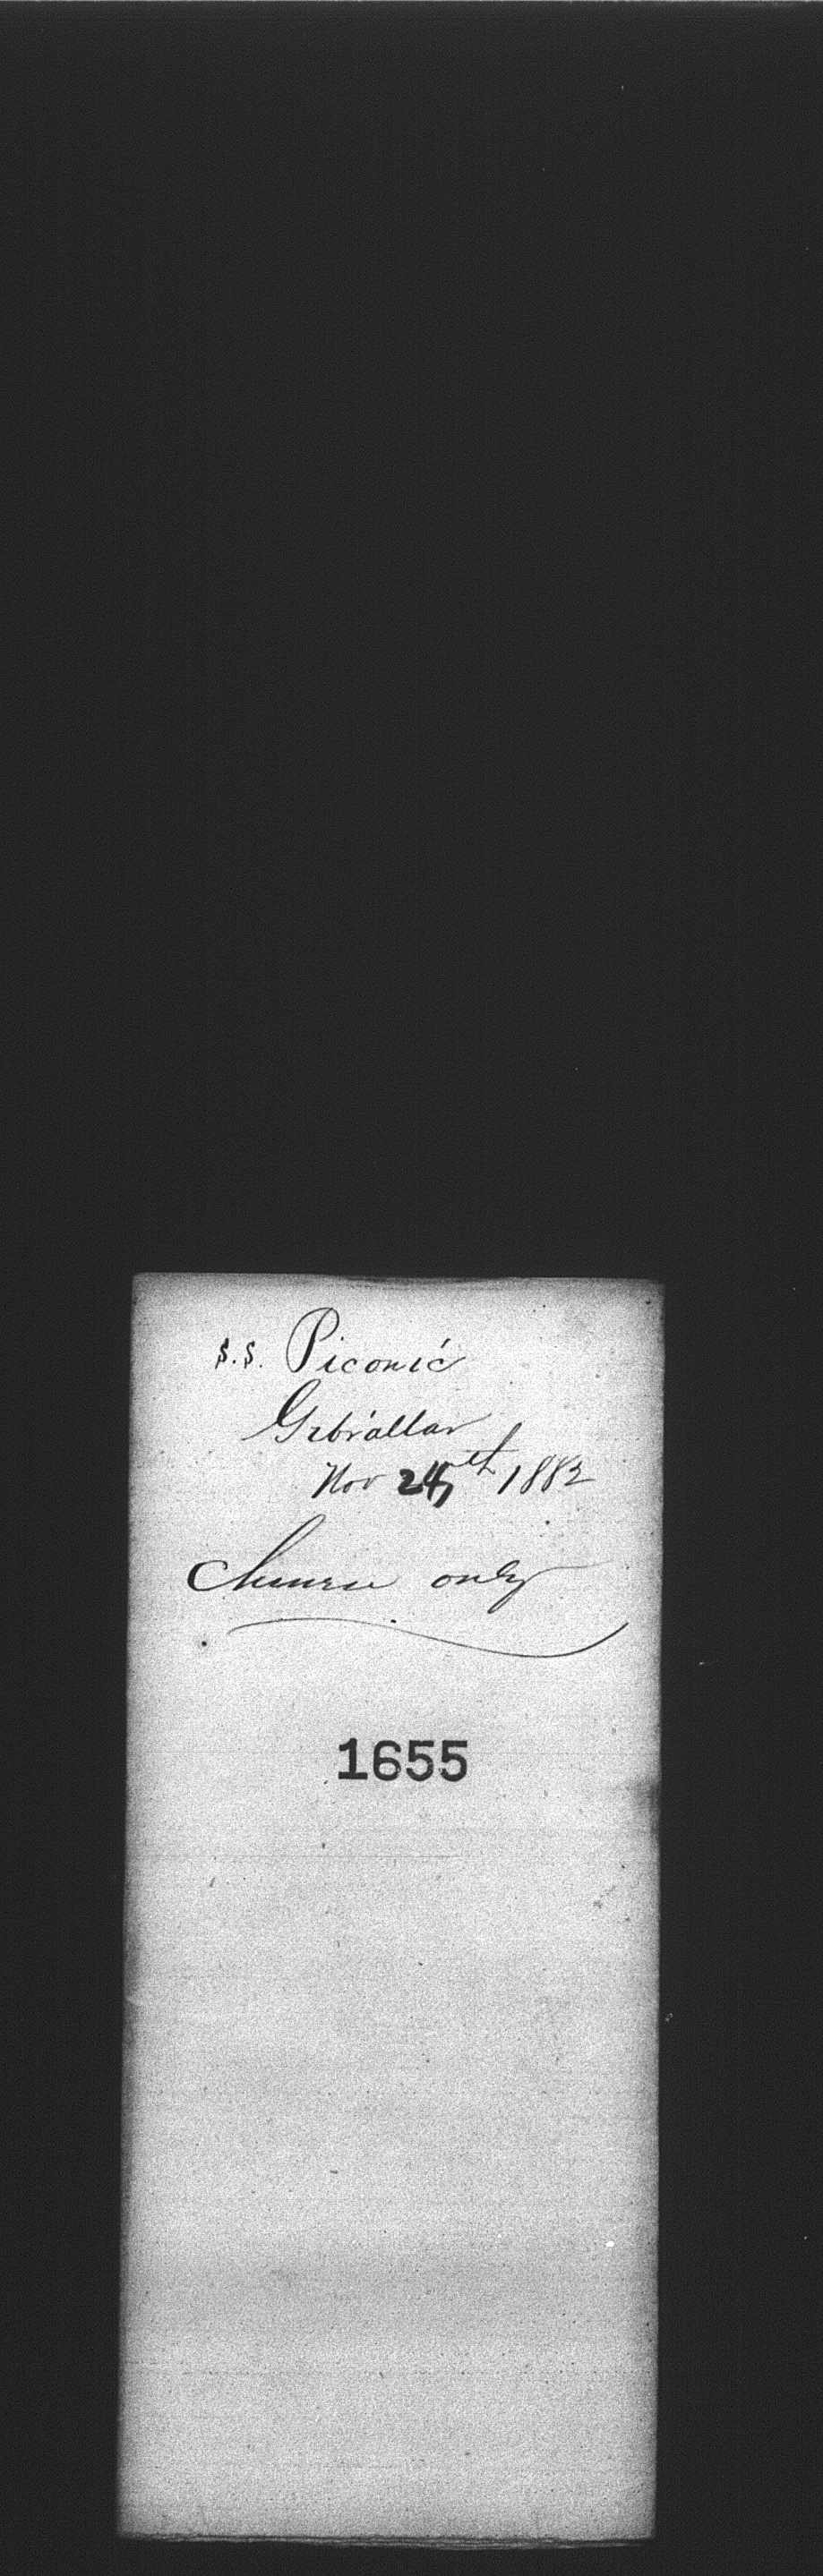 S.S. Piconic
Gibraltar
Nov 24th 1882
only
1655